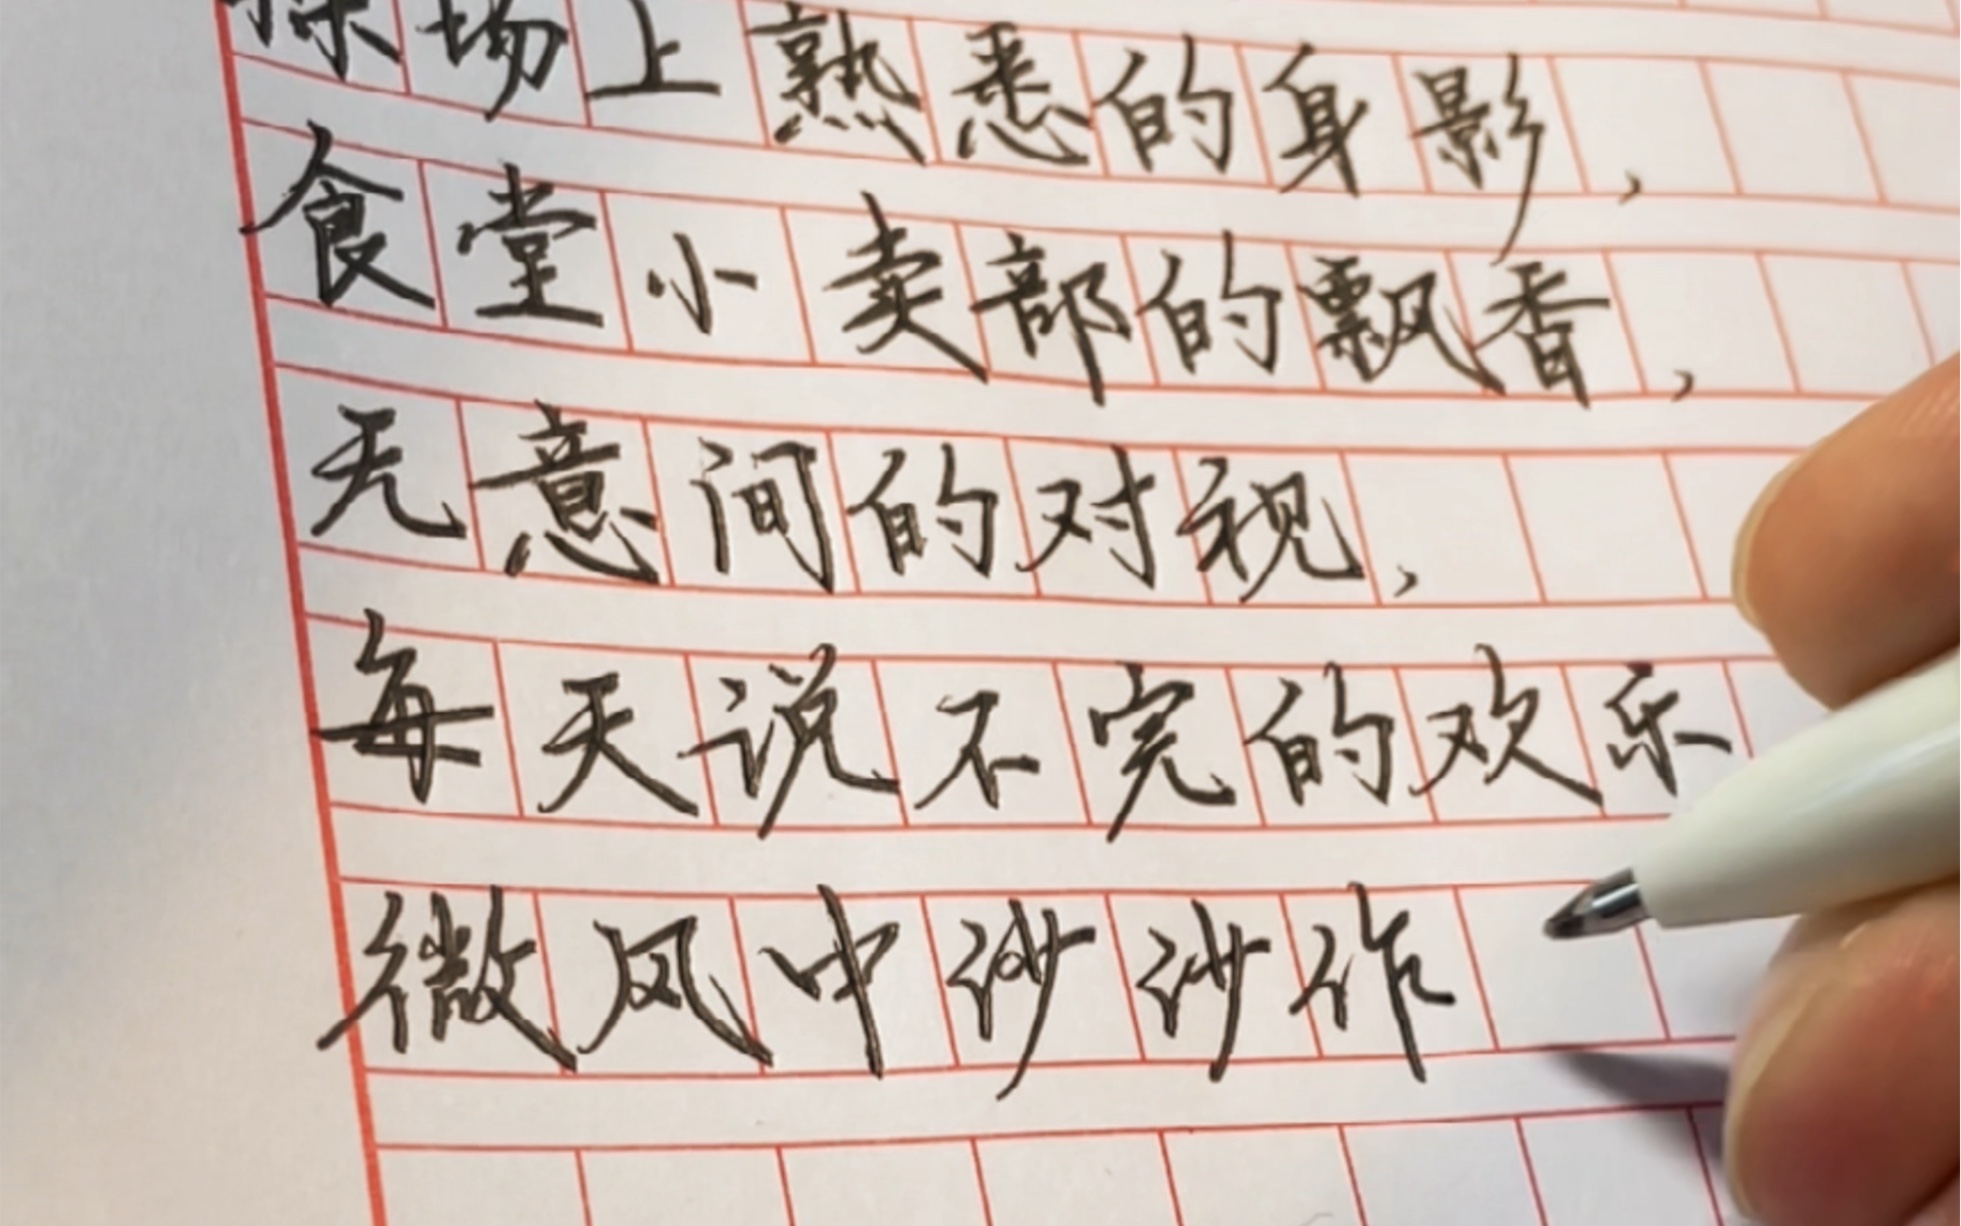 操场上熟悉的身影,
食堂小卖部的飘香,
无意间的对视,
每天说不完的欢乐
微风中沙沙作